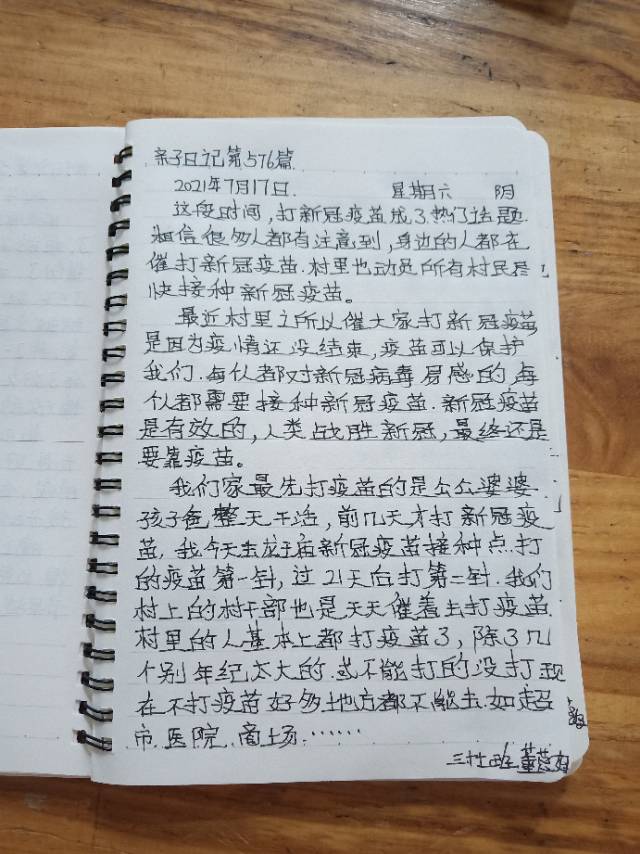 亲子日记第576篇
2021年7月17日 星期六 阴
这段时间,打新冠疫苗成了热门话题
相信很多人都有注意到,身边的人都在
催打新冠疫苗.村里也动员所有村民尽
快接种新冠疫苗。
最近村里之所以催大家打新冠疫苗
是因为疫情还没结束,疫苗可以保护
我们.每个都对新冠病毒易感的,每
个都需要接种新冠疫苗.新冠疫苗
是有效的,人类战胜新冠,最终还是
要靠疫苗。
我们家最先打疫苗的是公公婆婆
孩子爸整天干活,前几天才打新冠疫
苗,我今天去龙王庙新冠疫苗接种点打
的疫苗第一针,过21天后打第二针.我们
村上的村干部也是天天催着去打疫苗.
村里的人基本上都打疫苗了,除了几
个别年纪太大的.或不能打的没打现
在不打疫苗好多地方都不能去.如超
市.医院.商场……
三 班 董